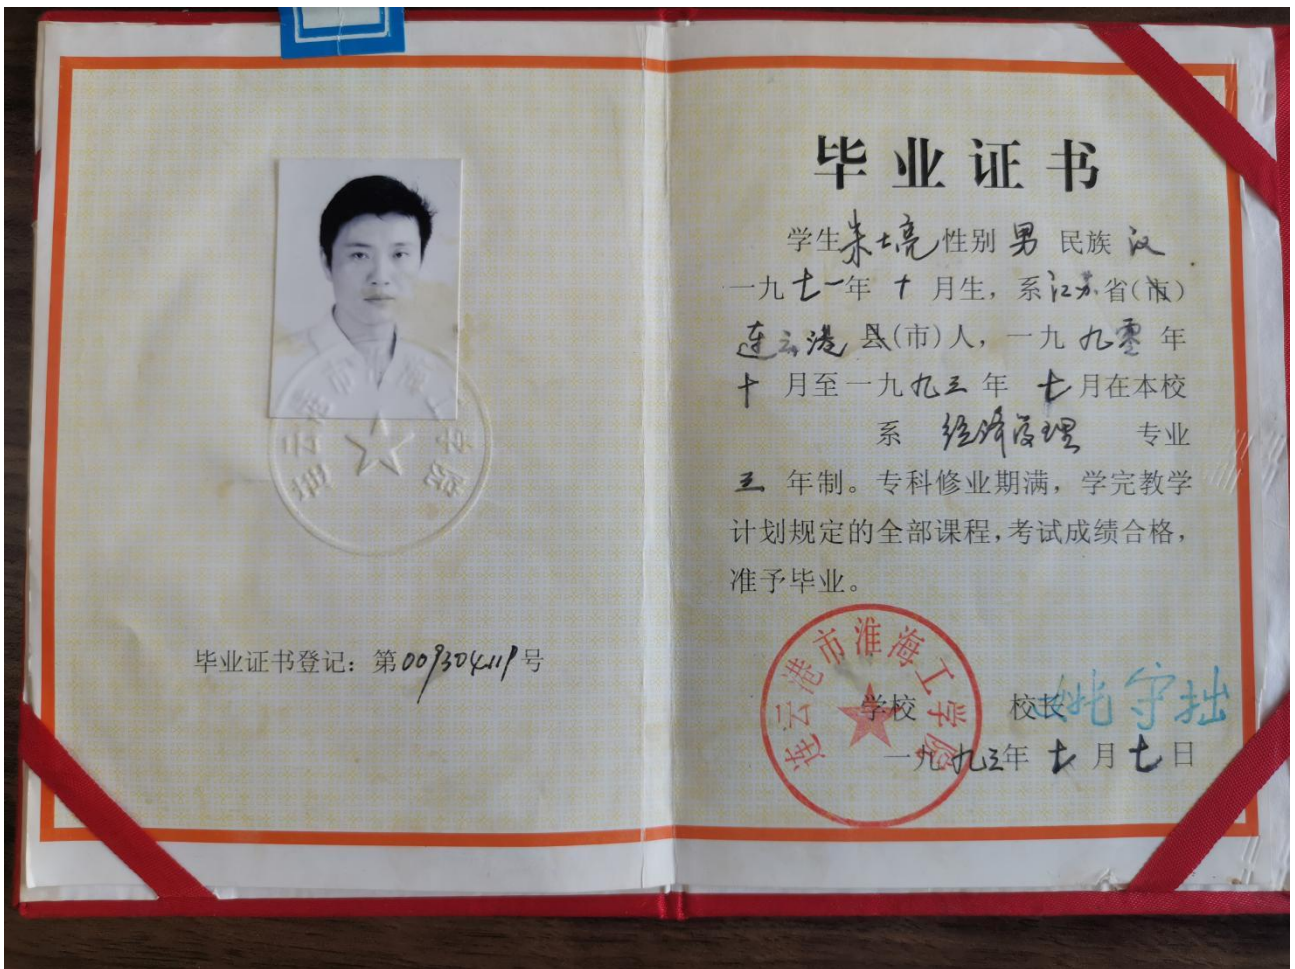 毕业证书登记：第009304119号
毕业证书
学生朱士亮性别男民族汉
一九七一年十月生，系江苏省(市)
连云港县(市)人，一九九零年
十月至一九九三年七月在本校
系 经济管理 专业
三年制。专科修业期满，学完教学
计划规定的全部课程，考试成绩合格，
准予毕业。
连云港市淮海工学院
学校 校长 姚守拙
一九九三年七月七日